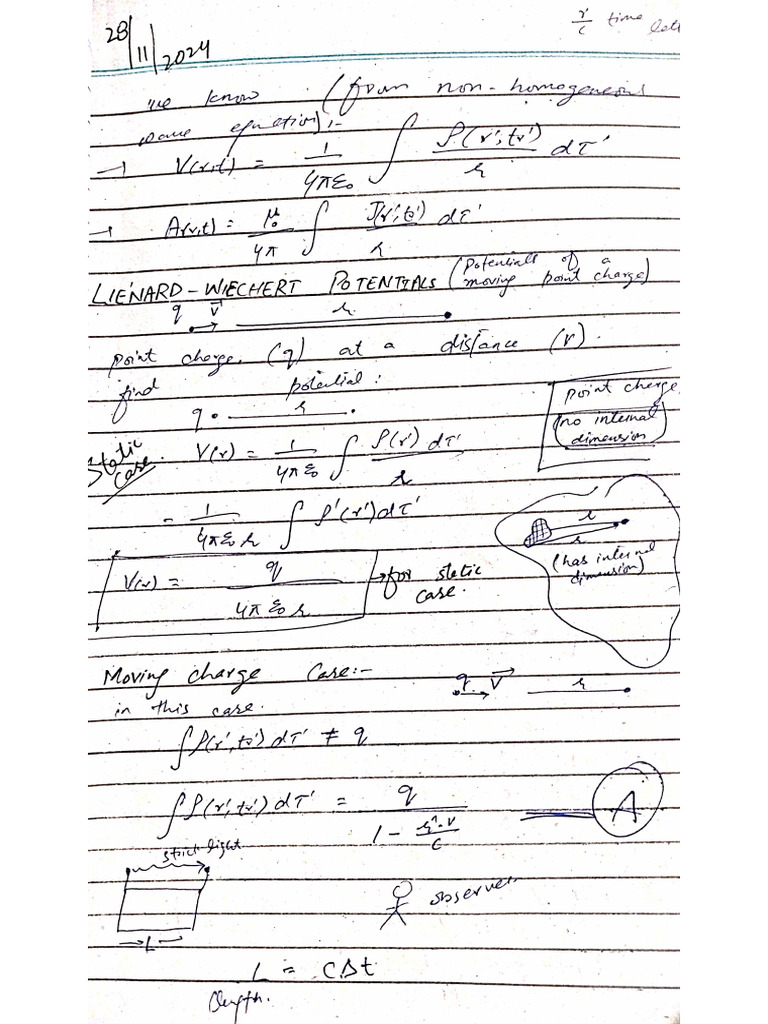 28/11/2024
r/c time
we know (from non-homogeneous
wave equation):-
→ V(r,t) = 1/4πε₀ ∫ ρ(r',tr')/r dτ'
→ A(r,t) = μ₀/4π ∫ J(r',tr')/r dτ'
LIÉNARD-WIECHERT POTENTIALS (Potentials of a moving point charge)
q v⃗ r
point charge (q) at a distance (r).
find potential:
q r
point charge
(no internal dimension)
Static case
V(r) = 1/4πε₀ ∫ ρ(r') dτ'/r
= 1/4πε₀r ∫ ρ'(r')dτ'
r
r
(has internal dimension)
V(r) = q/4πε₀r → for static case.
Moving charge case:-
q v⃗ r
in this case.
∫ρ(r',tr')dτ' ≠ q
∫ρ(r',tr')dτ' = q/(1 - r̂·v/c) A
light
observer
L
L = cΔt
length.